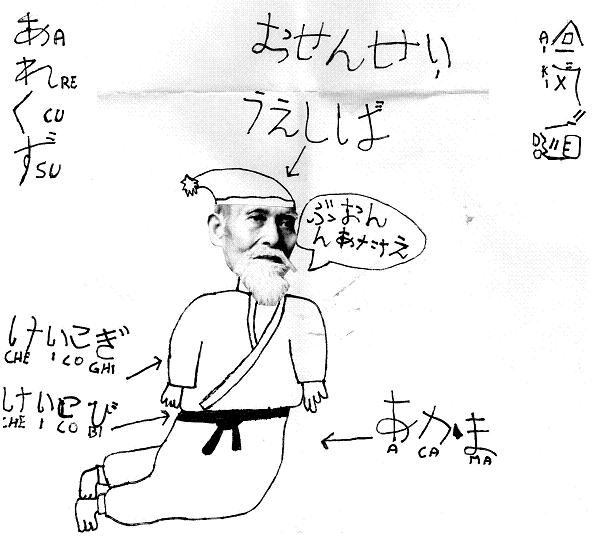 あ A
れ RE
く CU
ず SU
おっせんせい
うえししば
A
I
K
I
DO
ぶおん
けいこぎ
CHE I CO GHI
けいこび
CHE I CO BI
あかま
A CA MA